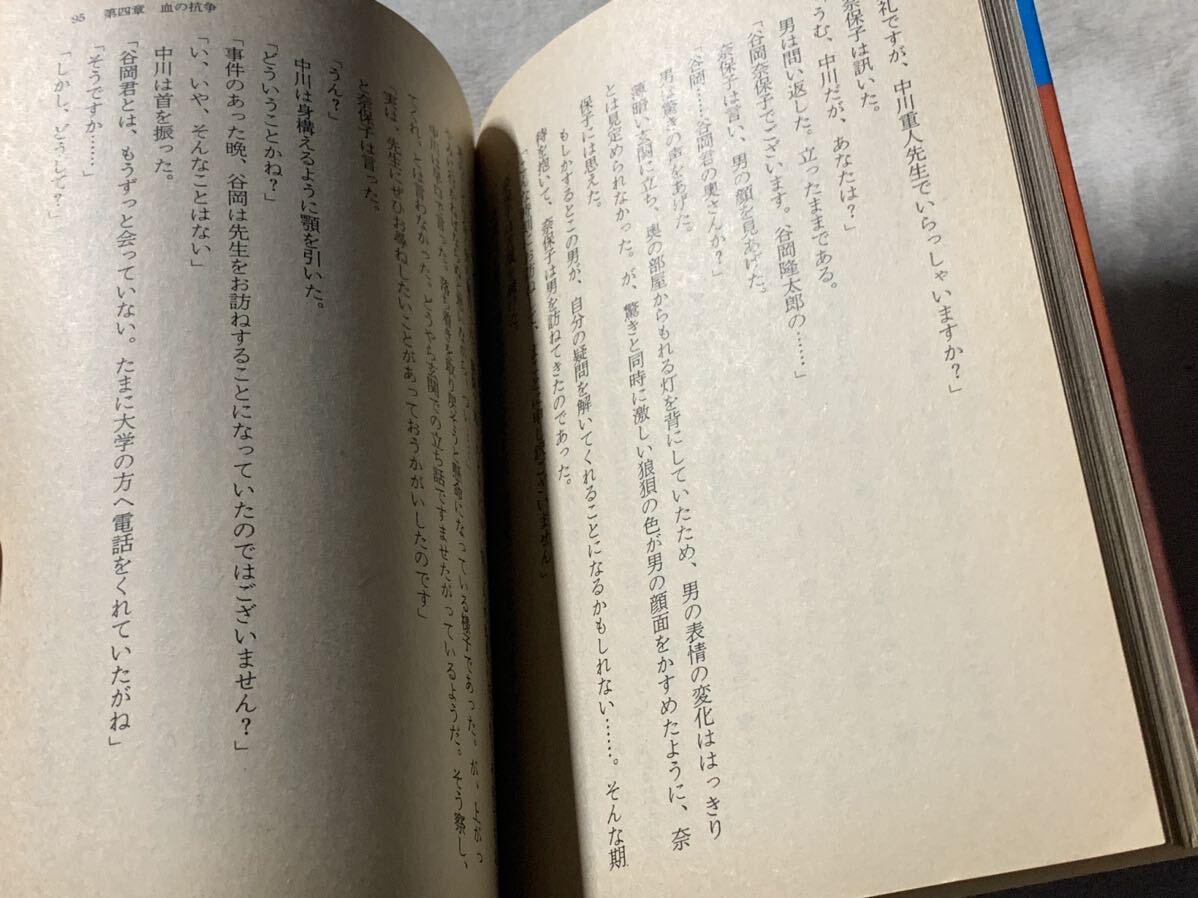 礼ですが、中川重人先生でいらっしゃいますか?」
奈保子は訊いた。
「うむ、中川だが、あなたは?」
男は問い返した。立ったままである。
「谷岡奈保子でございます。谷岡隆太郎の……」
奈保子は言い、男の顔を見あげた。
「谷岡……谷岡君の奥さんか?」
男は驚きの声をあげた。
薄暗い玄関に立ち、奥の部屋からもれる灯を背にしていたため、男の表情の変化ははっきり
とは見定められなかった。が、驚きと同時に激しい狼狽の色が男の顔面をかすめたように、奈
保子には思えた。
もしかするとこの男が、自分の疑問を解いてくれることになるかもしれない……。そんな期
待を抱いて、奈保子は男を訪ねてきたのであった。
中川は早口で言った。落ち着きを取り戻そうと懸命になっている様子であった。が、上がっ
てくれ、とは言わなかった。どうやら玄関での立ち話ですませたがっているようだ。そう察し、
「実は、先生にぜひお尋ねしたいことがあっておうかがいしたのです」
と奈保子は言った。
「うん?」
中川は身構えるように顎を引いた。
「どういうことかね?」
「事件のあった晩、谷岡は先生をお訪ねすることになっていたのではございません?」
「い、いや、そんなことはない」
中川は首を振った。
「谷岡君とは、もうずっと会っていない。たまに大学の方へ電話をくれていたがね」
「そうですか……」
「しかし、どうして?」
95 第四章 血の抗争